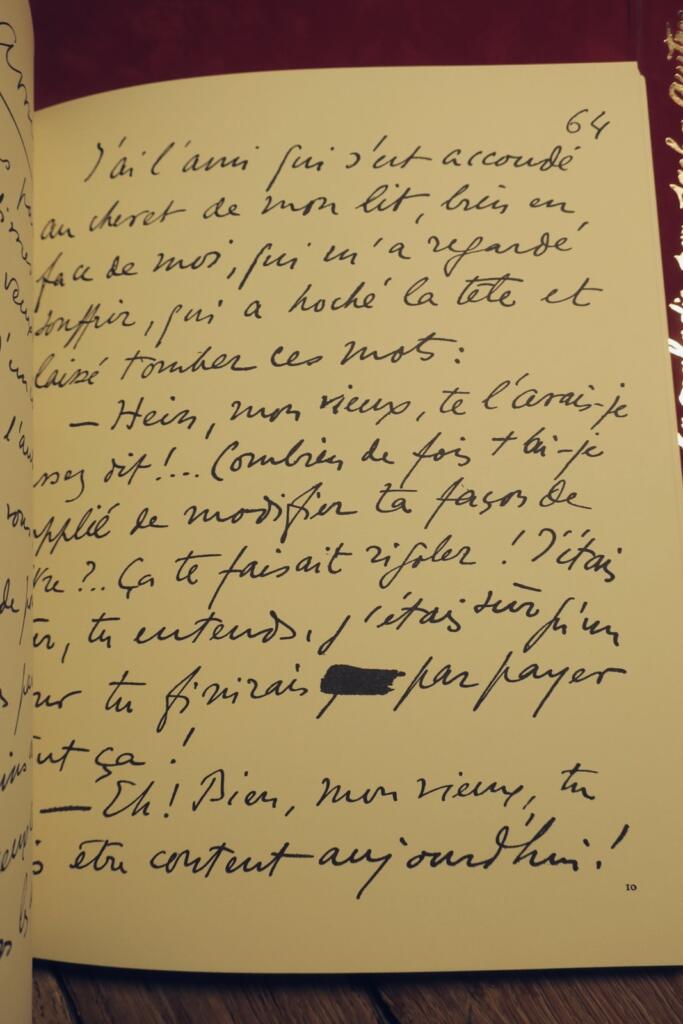 64
J'ai l'ami qui s'est accoudé
au chevet de mon lit, bien en
face de moi, qui m'a regardé
souffrir, qui a hoché la tête et
laissé tomber ces mots :
— Hein, mon vieux, te l'avais-je
ssez dit !... Combien de fois t'ai-je
pplié de modifier ta façon de
vre ?.. Ça te faisait rigoler ! J'étais
ûr, tu entends, j'étais sûr qu'un
our tu finirais par payer
ut ça !
— Eh ! Bien, mon vieux, tu
s être content aujourd'hui !
10